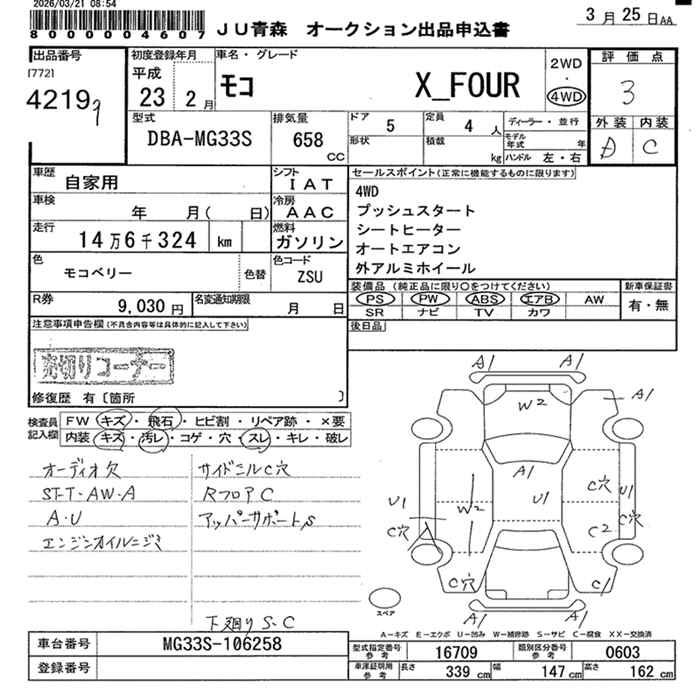 2026/03/21 08:54
800004607
JU青森 オークション出品申込書
3月25日AA
出品番号
[772]
4219
初度登録年月
平成
23 2月
車名・グレード
モコ X_FOUR
2WD
・
4WD
評価点
3
外装 内装
D C
型式
DBA-MG33S
排気量
658
CC
ドア
5
形状
定員
4人
積載
kg
ディーラー・並行
モデル年式 年
ハンドル 左・右
車歴
自家用
シフト
IAT
車検
年 月( 日)
冷房
AAC
走行
14万6千324 km
燃料
ガソリン
色
モコベリー
色替
色コード
ZSU
R券
9,030円
名変通知期限
月 日
セールスポイント(正常に機能するものに限ります)
4WD
プッシュスタート
シートヒーター
オートエアコン
外アルミホイール
装備品(純正品に限り○をつけてください)
新車保証書
PS PW ABS エアB AW
SR ナビ TV カワ
有・無
後日品
注意事項申告欄(不具合内容等は具体的に記入して下さい)
売切りコーナー
修復歴 有〔箇所 〕
検査員記入欄
FW キズ・飛石・ヒビ割・リペア跡・×要
内装・キズ・汚レ・コゲ・穴・スレ・キレ・破レ
オーディオ欠
ST-T-AW-A
A・U
エンジンオイルニジミ
サイドシルC穴
RフロアC
アッパーサポートS
下廻りS・C
A1 A1
W2
A1
A1
U1
W2
U1
C穴
U1
C穴
C穴
C2
C穴
C1
A1 A1
スペア
A-キズ E-エクボ U-凹み W-補修跡 S-サビ C-腐食 XX-交換済
車台番号
MG33S-106258
登録番号
型式指定番号
参考
16709
類別区分番号
参考
0603
車庫証明用
参考
長さ
339 cm
幅
147 cm
高さ
162 cm